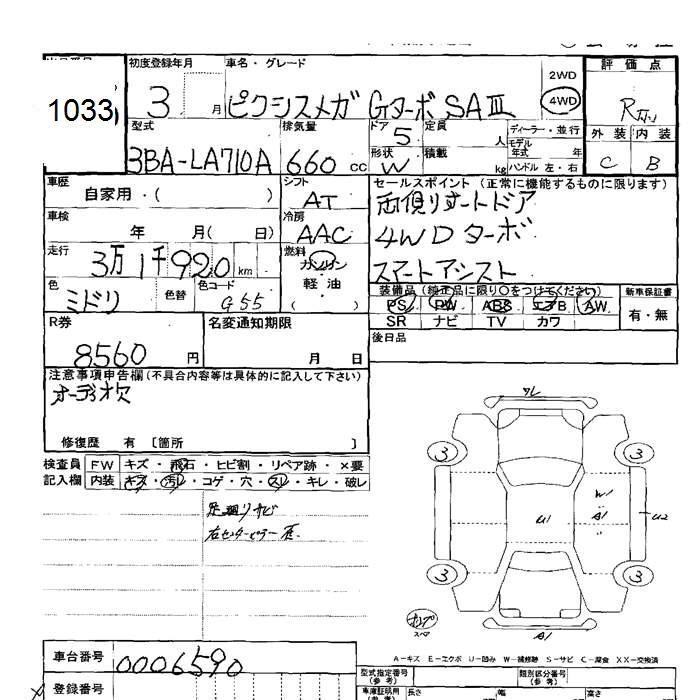 初度登録年月 車名・グレード 2WD 評価点
1033 3 月 ピクシスメガ Gターボ SAⅢ 4WD
型式 排気量 ドア 5 定員 人 ディーラー・並行 外装 内装
モデル年式 年
3BA-LA710A 660 cc 形状 W 積載 kg ハンドル 左・右 C B
車歴 シフト セールスポイント (正常に機能するものに限ります)
自家用・( ) AT 両側Pオートドア
車検 冷房 4WD ターボ
年 月( 日) AAC スマートアシスト
走行 燃料
3万1千920 km ガソリン
軽油
( )
色 色替 色コード
ミドリ G55
装備品 (純正品に限り○をつけてください) 新車保証書
PS PW ABS エアB AW 有・無
SR ナビ TV カワ
R券 名変通知期限 後日品
8560 円 月 日
注意事項申告欄(不具合内容等は具体的に記入して下さい)
オーディオ欠
修復歴 有 [箇所 ]
検査員 FW キズ・飛石・ヒビ割・リペア跡・×要
記入欄 内装 キズ・汚レ・コゲ・穴・スレ・キレ・破レ
足廻りサビ
右センターピラー
ワレ
3 3
W1
U1 A1 U2
3 3
スペア A1
A-キズ E-エクボ U-凹み W-補修跡 S-サビ C-腐食 XX-交換済
車台番号 0006590
登録番号
型式指定番号(参考) 類別区分番号(参考)
車庫証明用(参考) 長さ 幅 高さ